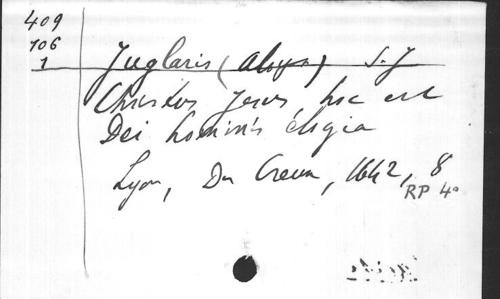 409
106
1
Juglaris (Aloys) S. J
Christus Jesus, hoc est
Dei hominis elogia
Lyon, Du Creux, 1642, 8
RP 4°